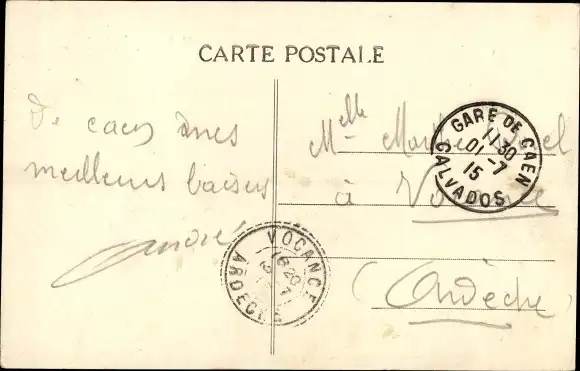 CARTE POSTALE
De caen mes
meilleurs baisers
andré
Melle Marthe
à Vocance
(Ardèche)
GARE DE CAEN
11 30
01 -7
15
CALVADOS
VOCANCE
ARDECHE